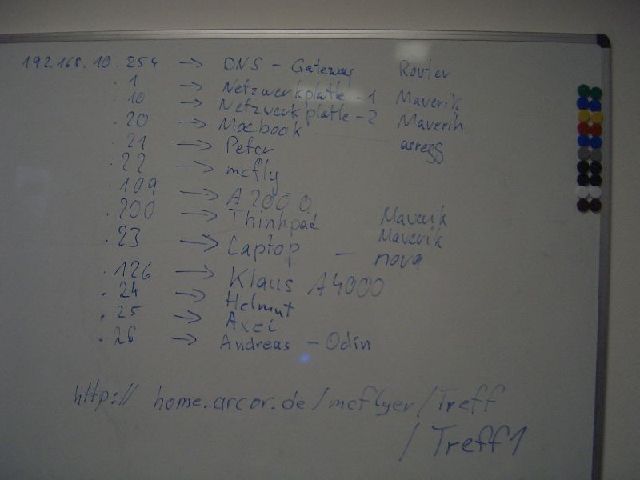 192.168.10.254 → DNS - Gateway Router
.1 → Netzwerkplatte-1 Maverik
.10 → Netzwerkplatte-2 Maverik
.20 → Macbook asregg
.21 → Peter
.22 → mcfly
.109 → A2000
.200 → Thinkpad Maverik
.23 → Laptop Maverik - nova
.126 → Klaus A4000
.24 → Helmut
.25 → Axel
.26 → Andreas - Odin
http:// home.arcor.de/mcflyer/Treff
/Treff1